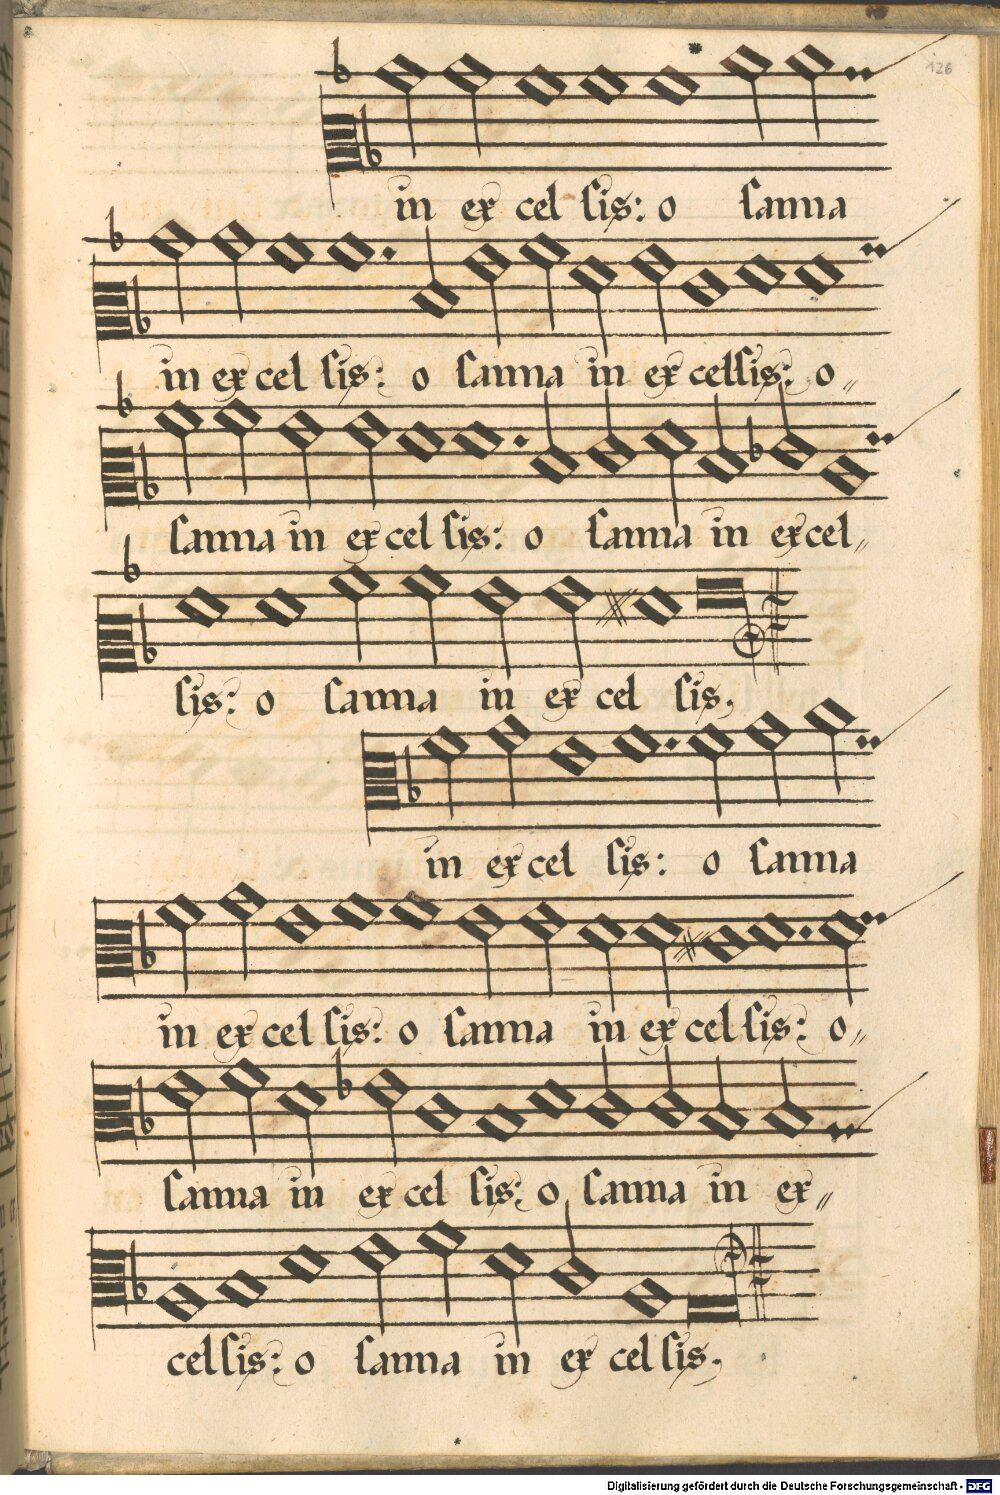 126
in ex cel sis: o sanna
in ex cel sis: o sanna in ex celsis: o„
sanna in ex cel sis: o sanna in excel„
sis: o sanna in ex cel sis,
in ex cel sis: o sanna
in ex cel sis: o sanna in ex cel sis: o„
sanna in ex cel sis: o sanna in ex„
celsis: o sanna in ex cel sis,
Digitalisierung gefördert durch die Deutsche Forschungsgemeinschaft - DFG